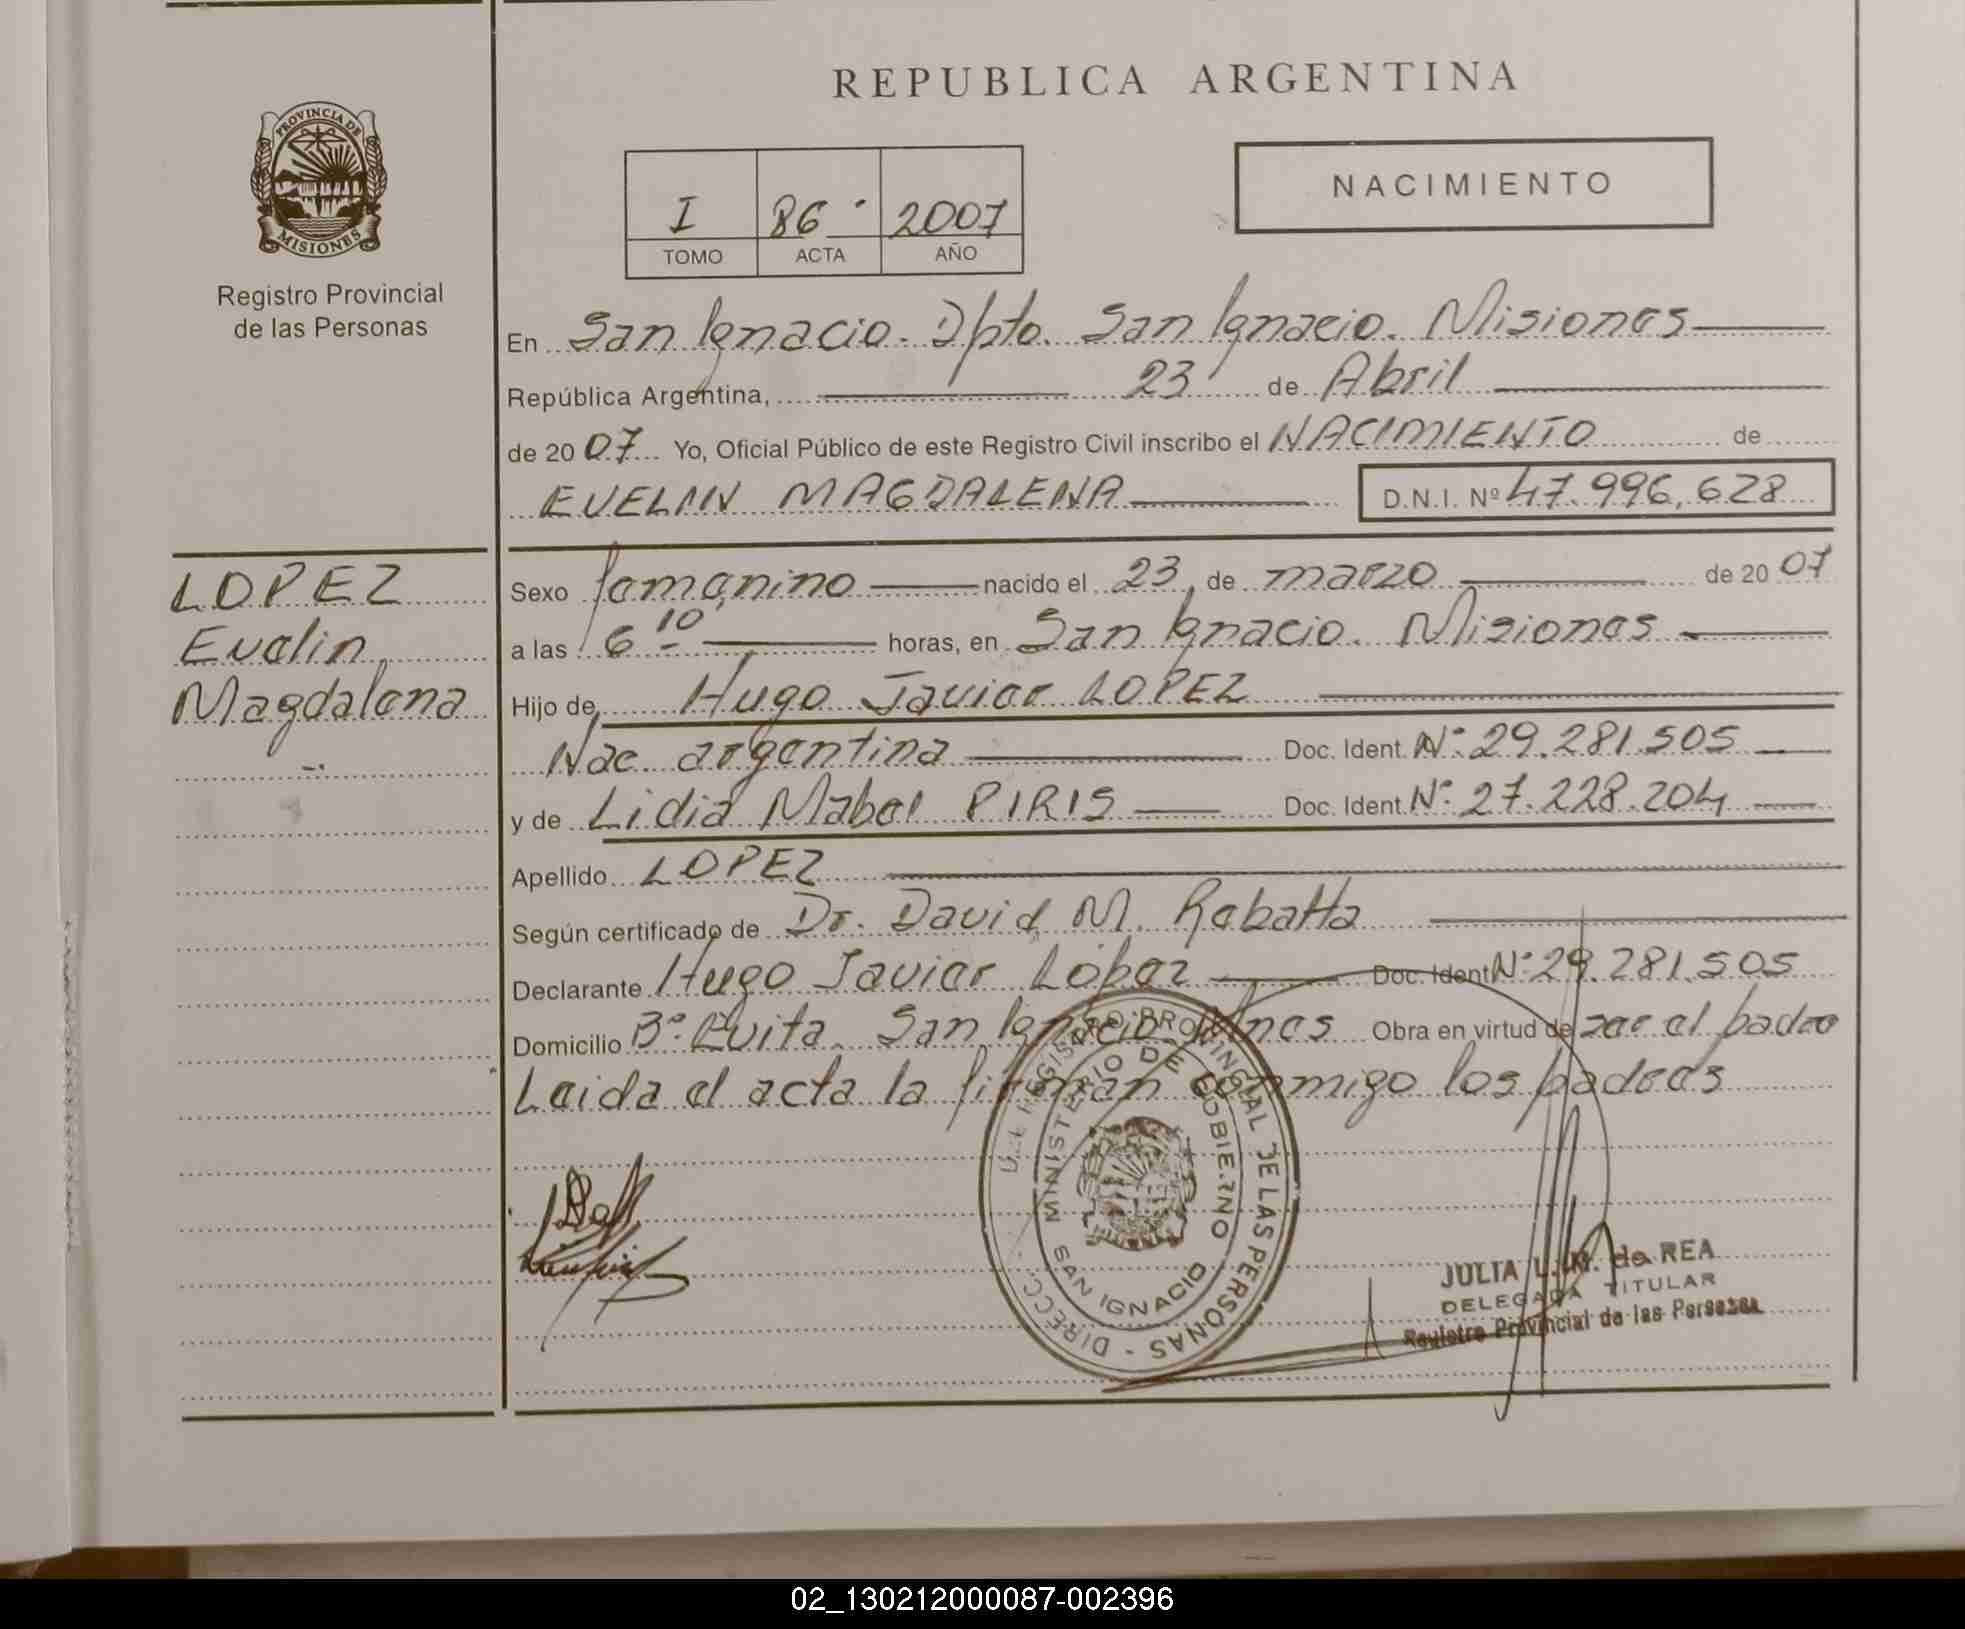 REPUBLICA ARGENTINA
PROVINCIA DE
MISIONES
Registro Provincial
de las Personas
I 86 2007
TOMO ACTA AÑO
NACIMIENTO
En San Ignacio. Dpto. San Ignacio. Misiones
República Argentina, 23 de Abril
de 2007 Yo, Oficial Público de este Registro Civil inscribo el NACIMIENTO de
EVELIN MAGDALENA D.N.I. Nº 47.996.628
LOPEZ
Evelin
Magdalena
Sexo femenino nacido el 23 de marzo de 2007
a las 6 10 horas, en San Ignacio. Misiones
Hijo de Hugo Javier LOPEZ
Nac. argentina Doc. Ident. Nº 29.281.505
y de Lidia Mabel PIRIS Doc. Ident. Nº 27.228.204
Apellido LOPEZ
Según certificado de Dr. David M. Rabatta
Declarante Hugo Javier López Doc. Ident Nº 29.281.505
Domicilio Bº Evita. San Ignacio Mnes Obra en virtud de ser el padre
Leida el acta la firman conmigo los padres
DIRECC. REGISTRO PROVINCIAL DE LAS PERSONAS -
MINISTERIO DE GOBIERNO
SAN IGNACIO
JULIA de REA
DELEGADA TITULAR
Registro Provincial de las Personas
02_130212000087-002396